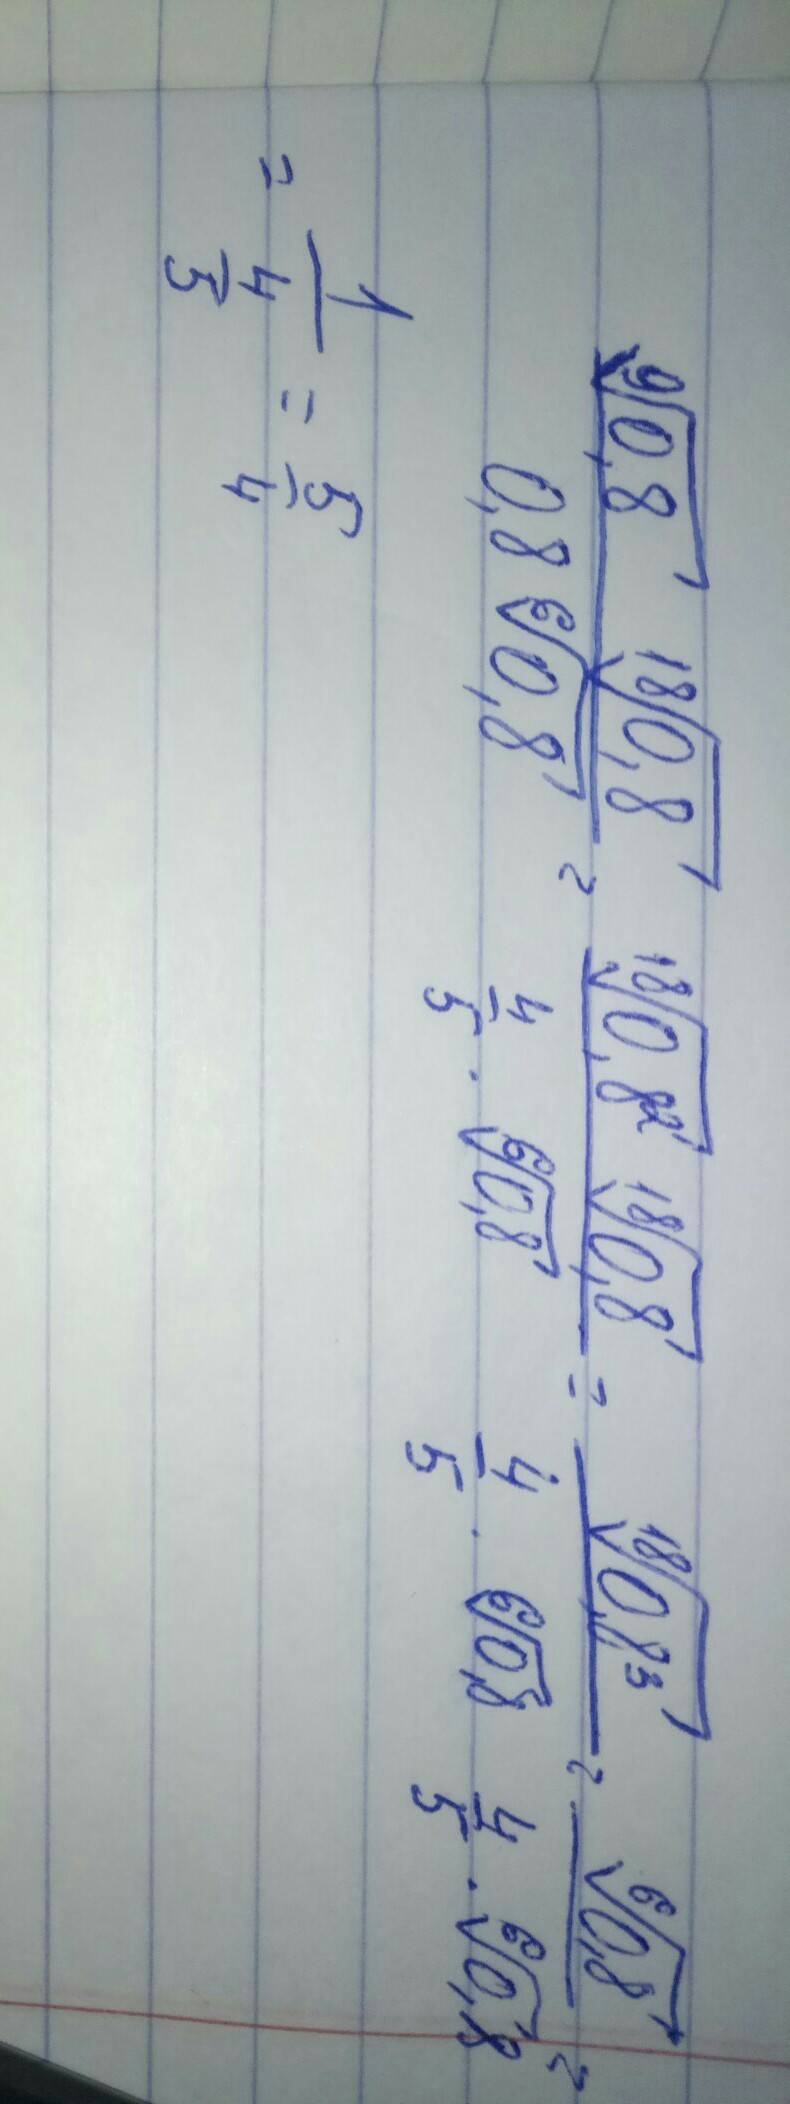 ⁹√0,8 ¹⁸√0,8 / 0,8 ⁶√0,8 = ¹⁸√0,8² ¹⁸√0,8 / 4/5 · ⁶√0,8 = ¹⁸√0,8³ / 4/5 · ⁶√0,8 = ⁶√0,8 / 4/5 · ⁶√0,8 =
= 1 / 4/5 = 5/4